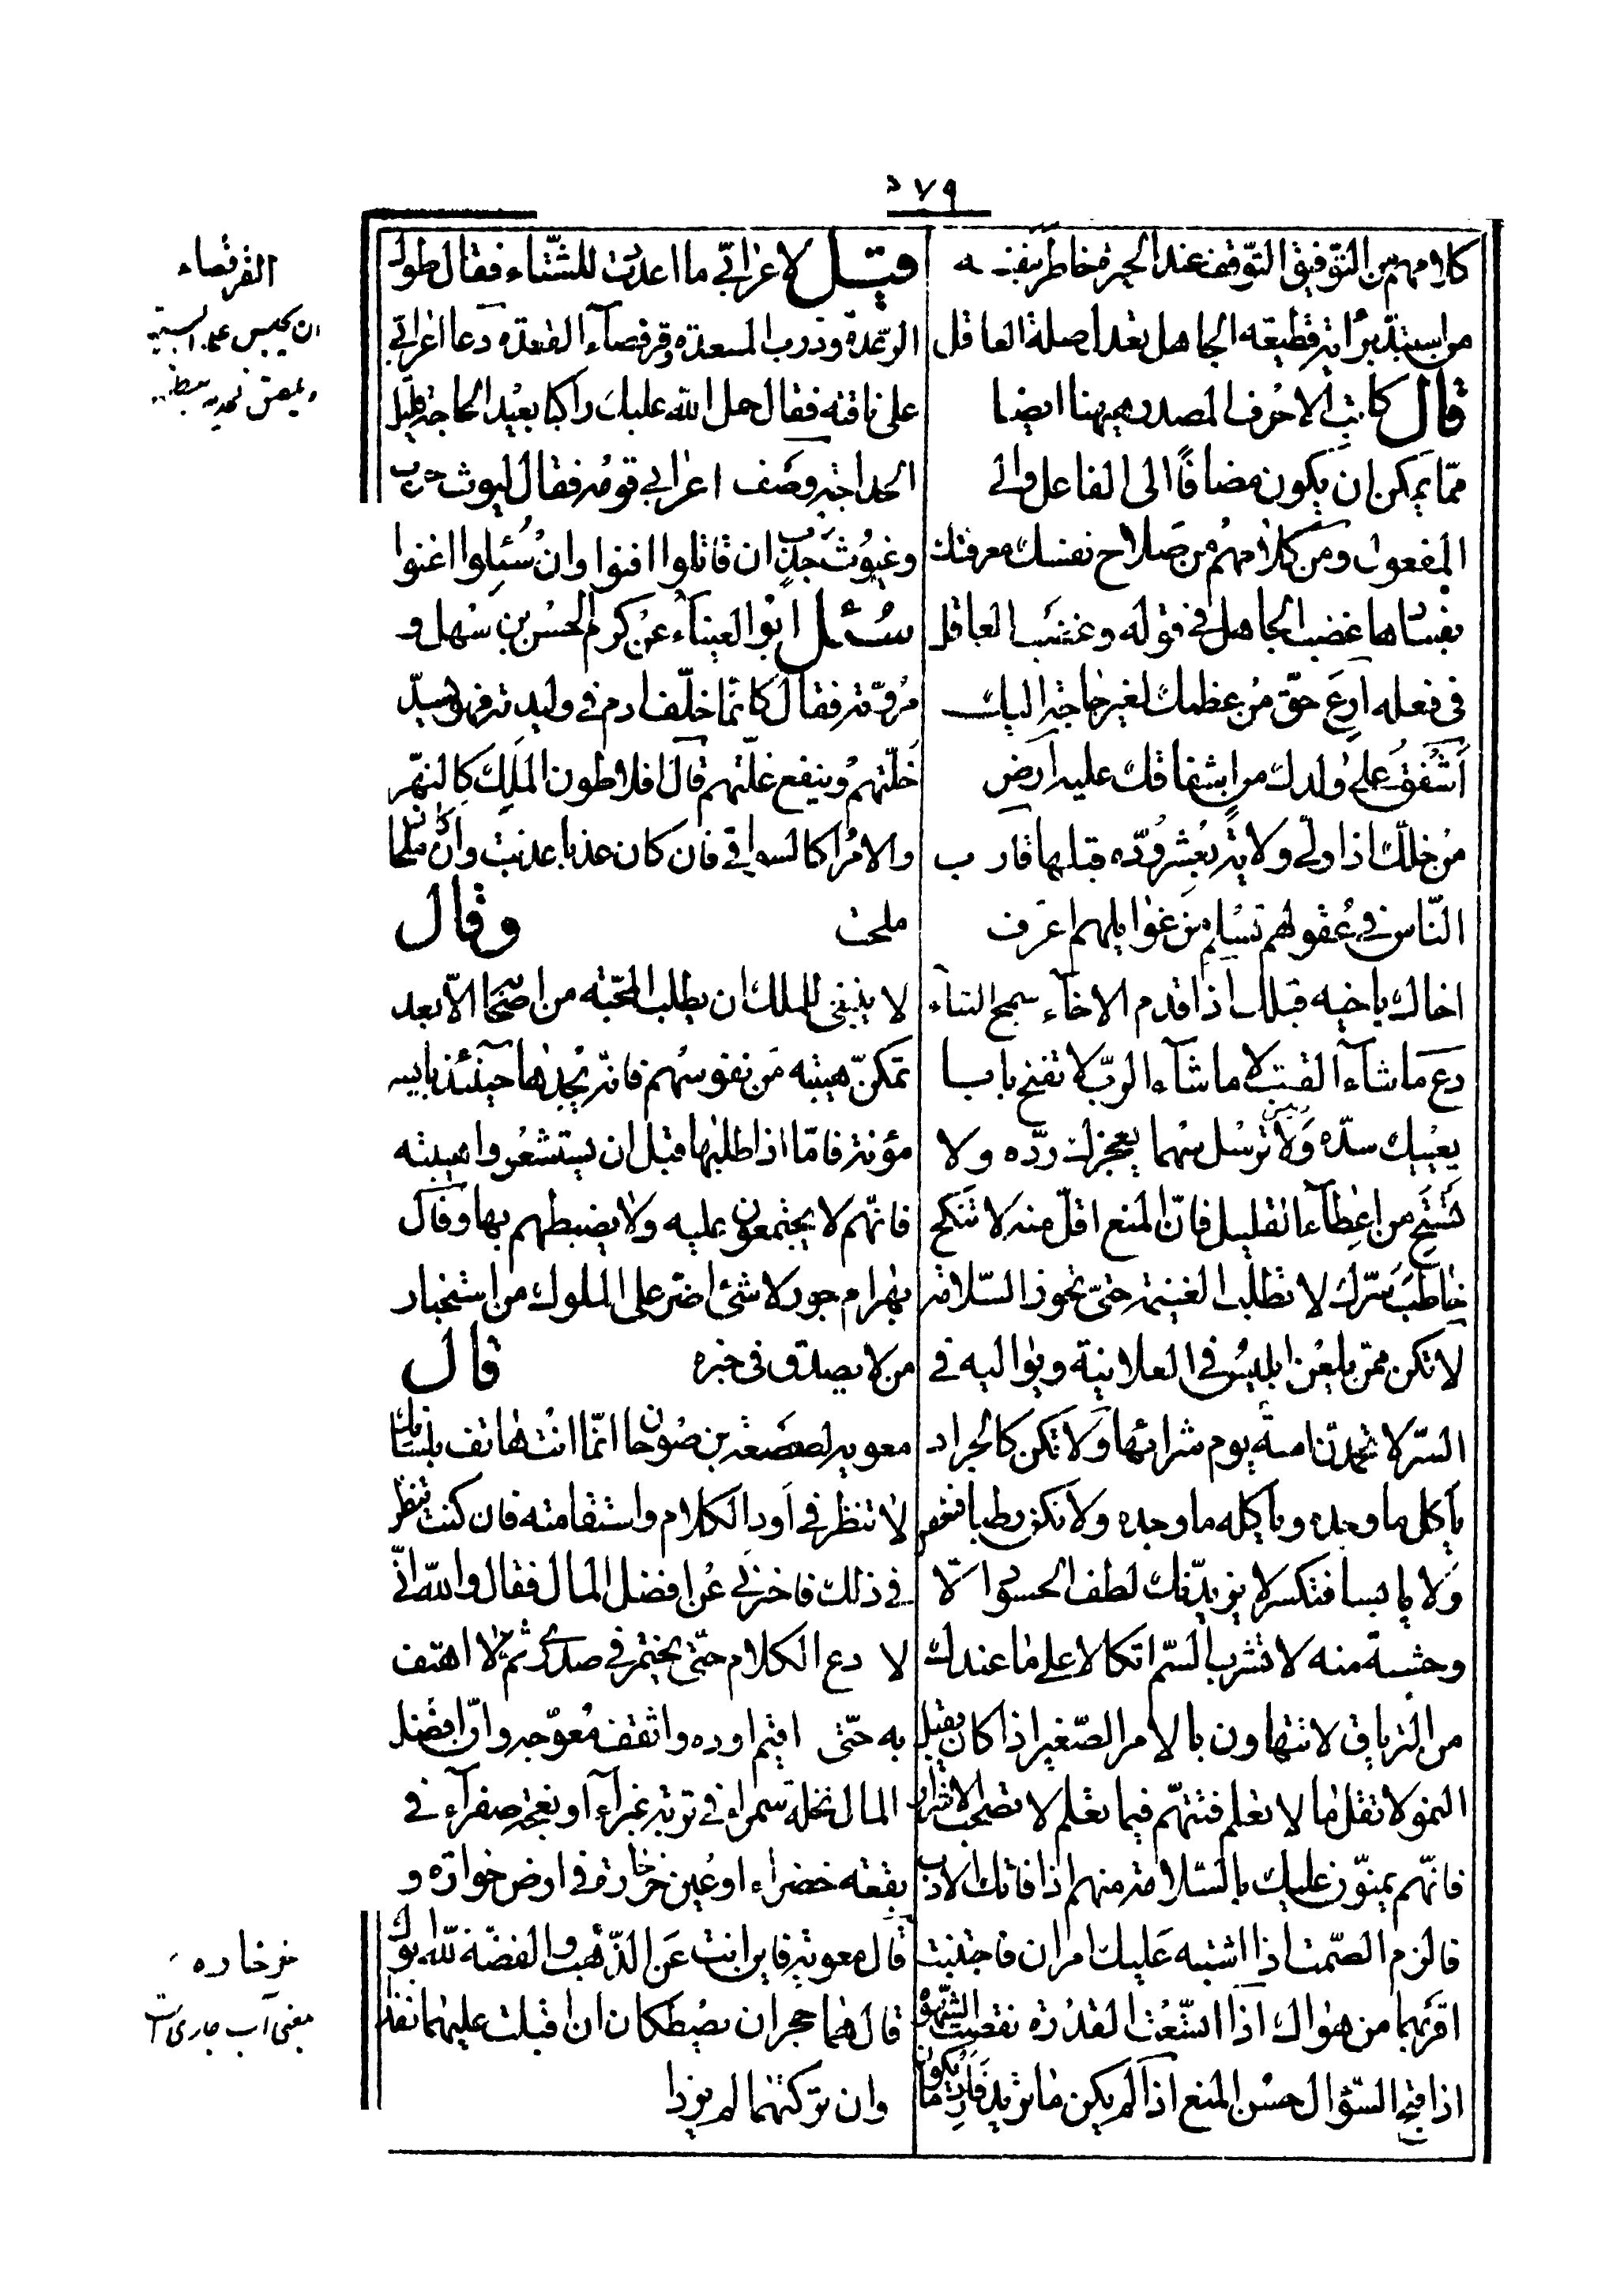 ٥٧٩
كلامهم من التوفيق التوقف عند الحيرة خاطر بنفسه
من استبد برأيه قطيعه الجاهل تعدل صلة العاقل
قال كاتب الاحرف المصدر ههنا ايضا
ممّا يمكن ان يكون مضافًا الى الفاعل والى
المفعول ومن كلامهم من صلاح نفسك معرفتك
بفسادها غضب الجاهل فى قوله وغضب العاقل
فى فعله ارع حقّ من عظمك لغير حاجة اليك
اشفق على ولدك من اشفاقك عليه ارض
من خلك اذا ولّى ولاية بعشر ودّه قبلها قارب
النّاس فى عقولهم تسلم من غوايلهم اعرف
اخاك باخيه قبلك اذا قدم الاخآء سمج الثنآء
دع ما شآء القلب لا ما شآء الربّ لا تفتح بابا
يعييك سدّه ولا ترسل سهما يعجزك ردّه ولا
تستح من اعطآء القليل فانّ المنع اقلّ منه لا تنكح
خاطب سرّك لا تطلب الغنيمة حتّى تحوز السّلامة
لا تكن ممّن يلعن ابليس فى العلانية ويواليه فى
السرّ لا تحمدن امة يوم شرائها ولا تكن كالجراد
يأكل ما وجده ويأكله ما وجده ولا تكن رطبا فتعصر
ولا يابسا فتكسر لا يزيدنّك لطف الحسود الّا
وحشة منه لا تشرب السّم اتكالا على ما عندك
من الترياق لا تتهاون بالامر الصّغير اذا كان يقبل
النمو لا تقل ما لا تعلم فتتهم فيما تعلم لا تصحب الاشرار
فانّهم يمنّون عليك بالسّلامة منهم اذا فاتك الادب
فالزم الصّمت اذا اشتبه عليك امران فاجتنب
اقربهما من هواك اذا اتسعت القدرة نقصت الشهوة
اذا قبح السّؤال حسن المنع اذا لم يكن ما تريد فارد ما يكون
قيل لاعرابىّ ما اعددت للشّتاء فقال طول
الرعدة وذرب المعدة وقرفصآء القعدة دعا اعرابىّ
على ناقته فقال حمل الله عليك راكبا بعيد الحاجة قليل
الحداجة وصف اعرابى قومه فقال ليوث حرب
وغيوث جدب ان قاتلوا افنوا وان سئلوا اغنوا
سئل ابو العيناء عن كرم الحسن بن سهل و
مروّته فقال كانّما خلّف ادم فى وليده فهو يسدّ
خلّتهم وينفع غلّتهم قال افلاطون الملك كالنهر
والامرا كالسواقى فان كان عذبا عذبت وان كان ملحا
ملحت وقال
لا ينبغى للملك ان يطلب المحبّة من اصحابه الّا بعد
تمكنّ هيبته من نفوسهم فانّه يجدها حينئذ بايسر
مؤنة فامّا اذا طلبها قبل ان يستشعروا هيبته
فانّهم لا يجتمعون عليه ولا يضبطهم بها وقال
بهرام جور لا شئ اضر على الملوك من استخبار
من لا يصدق فى خبره قال
معوية لصعصعة بن صوحان انّما انت هاتف بلسانك
لا تنظر فى اود الكلام واستقامته فان كنت تنظر
فى ذلك فاخبرنى عن افضل المال فقال والله انّى
لا دع الكلام حتّى يختمر فى صدرى ثم لا اهتف
به حتّى اقيم اوده واثقف معوجه وانّ افضل
المال نخلة سمراء فى تربة غبرآء او نعجة صفرآء فى
بقعة خضراء او عين خرخارة فى ارض خوارة و
قال معوية فاين انت عن الذّهب والفضّة لله ابوك
قال هما حجران يصطكان ان اقبلت عليهما نفدا
وان تركتهما لم يزدا
القرفصاء
ان يجلس على اليتيه
ويلصق فخذيه ببطنه
خرخاره
بمعنى آب جارى است